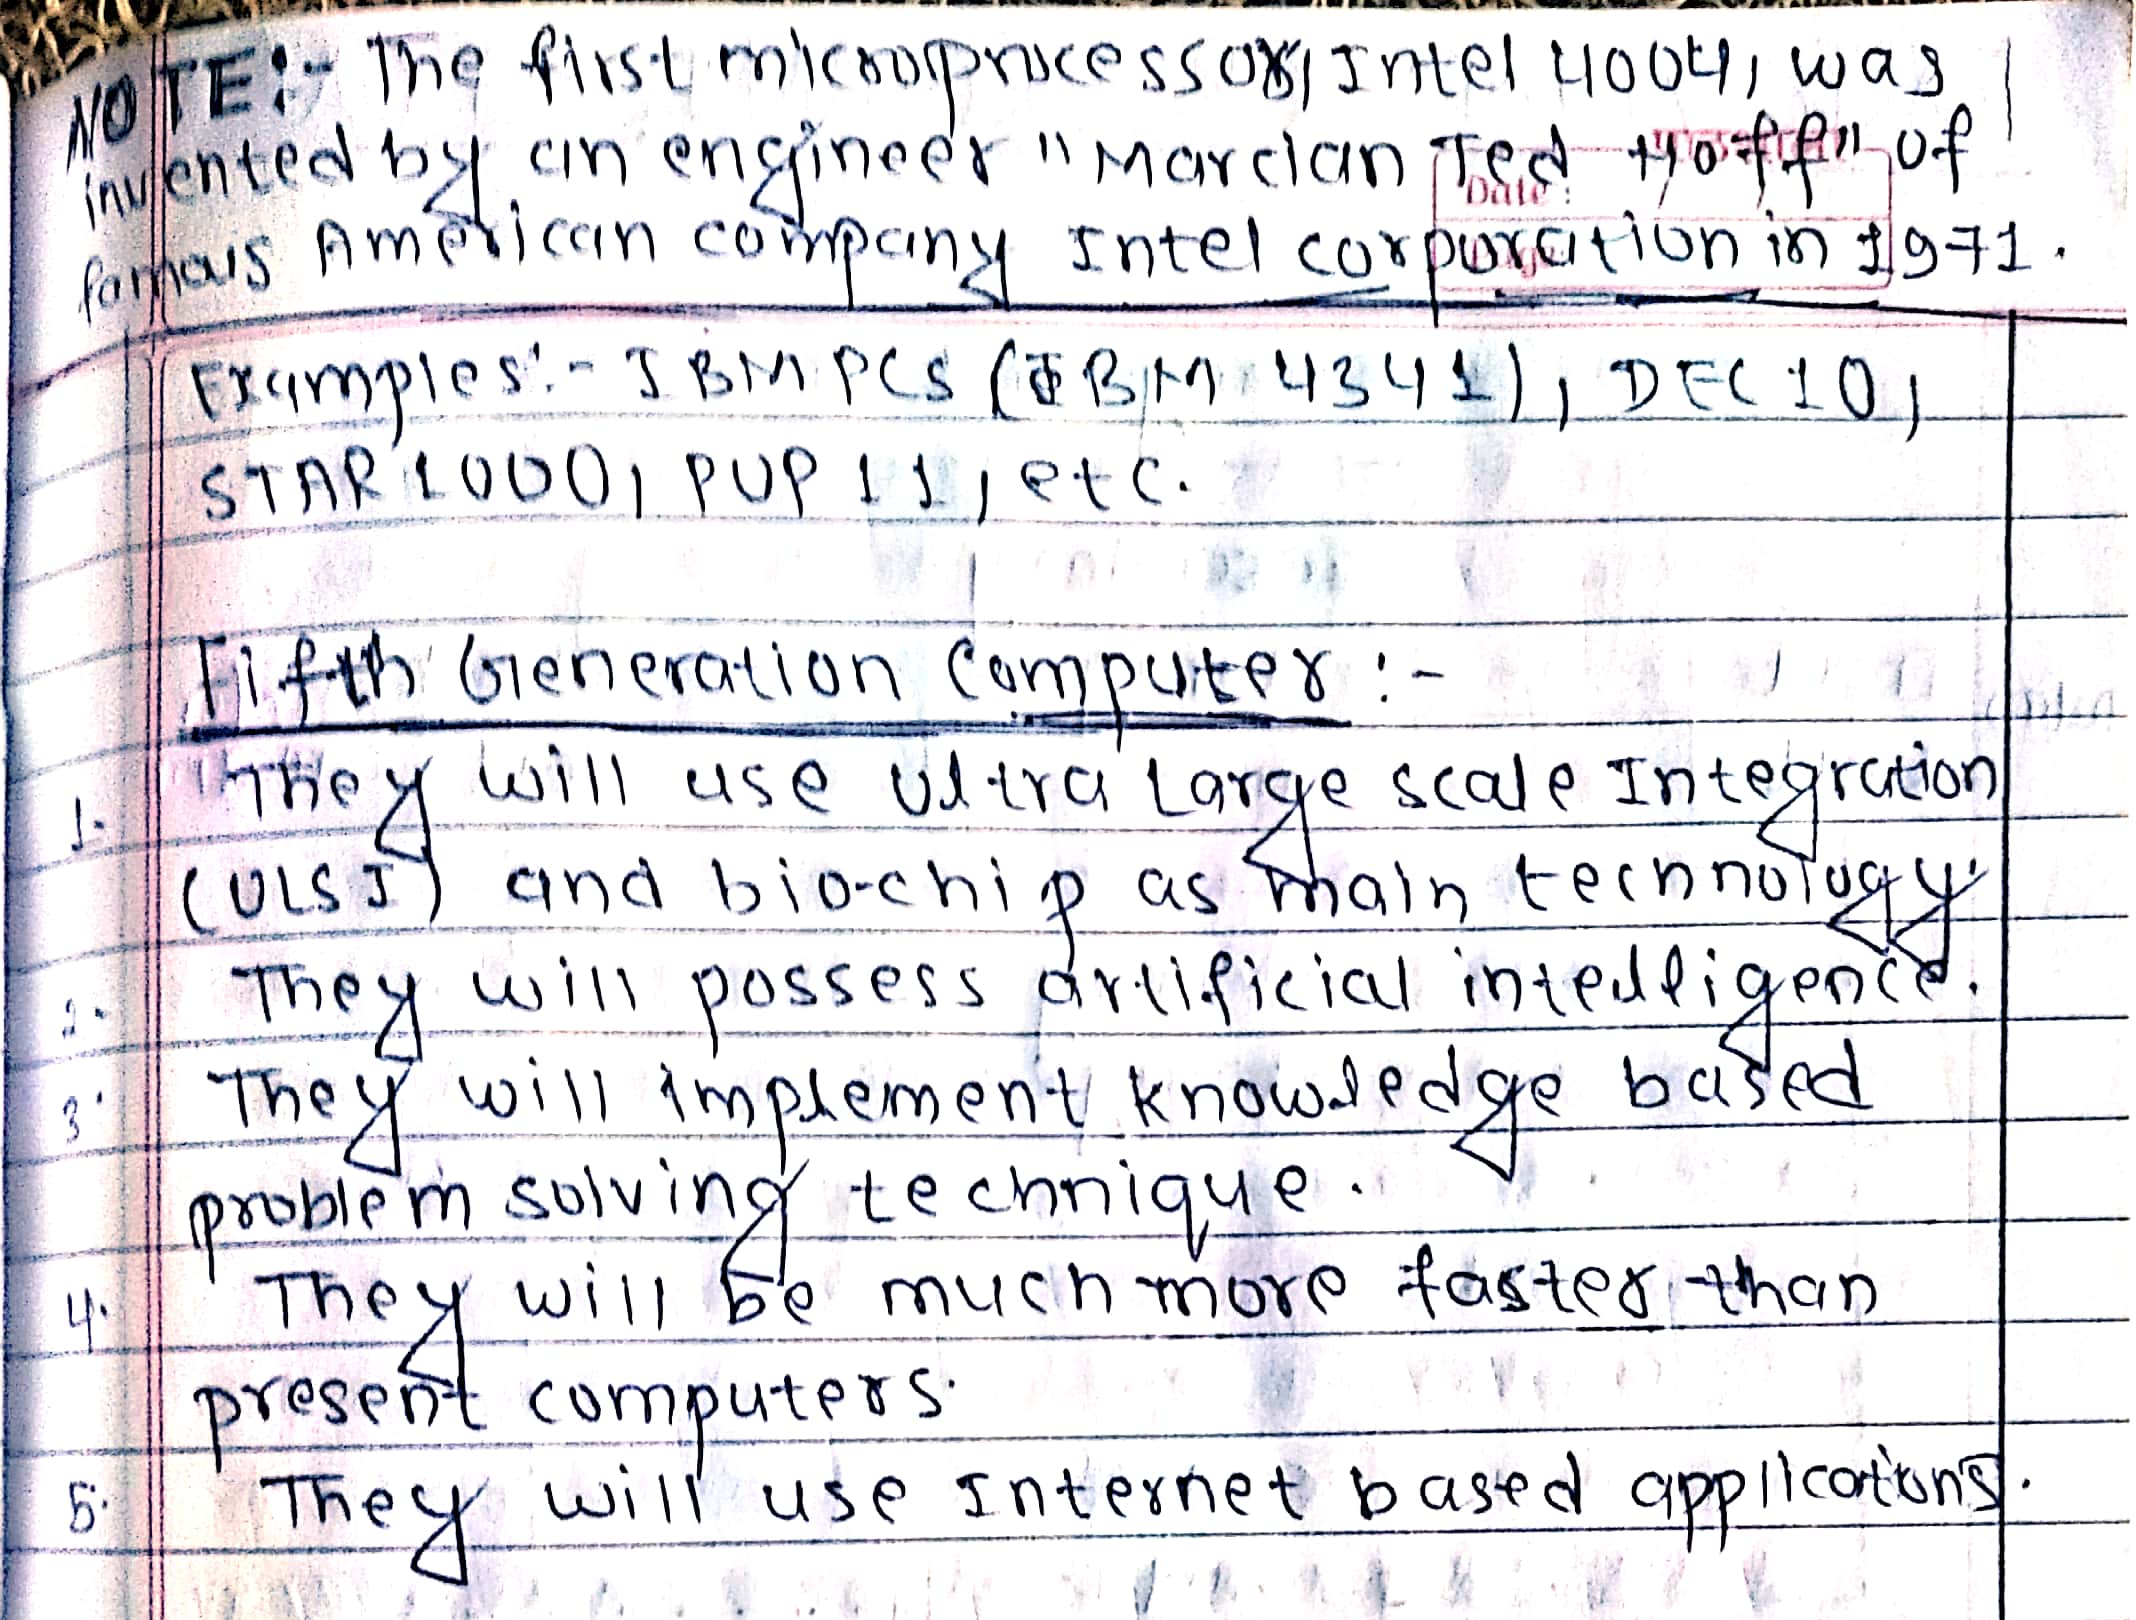 NOTE:- The first microprocessor, Intel 4004, was
invented by an engineer "Marcian Ted Hoff" of
famous American company Intel corporation in 1971.
Date:
Examples:- IBM PCS (IBM 4341), DEC 10,
STAR 1000, PUP 11, etc.
Fifth Generation Computer :-
1. They will use Ultra Large scale Integration
(ULSI) and bio-chip as main technology.
2. They will possess artificial intelligence.
3. They will implement knowledge based
problem solving technique.
4. They will be much more faster than
present computers.
5. They will use Internet based applications.